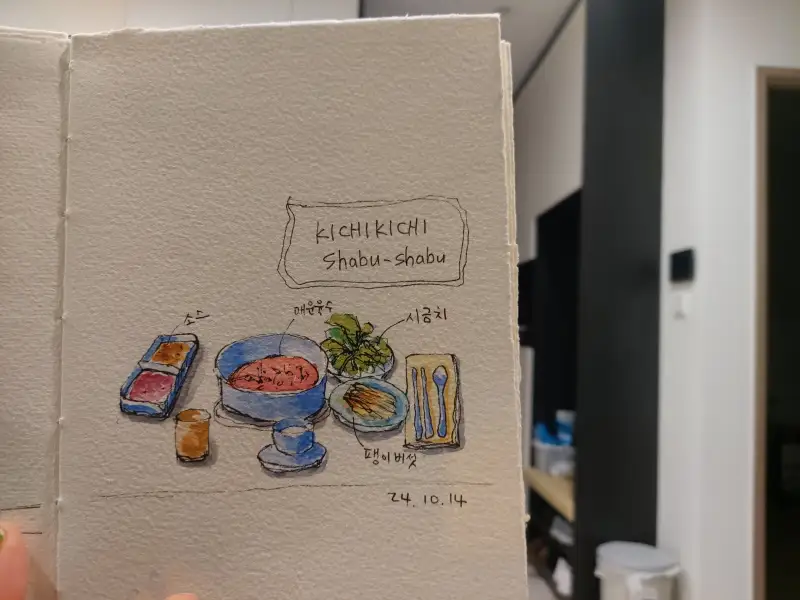 KICHIKICHI
Shabu-shabu
소스
매운육수
시금치
팽이버섯
24.10.14